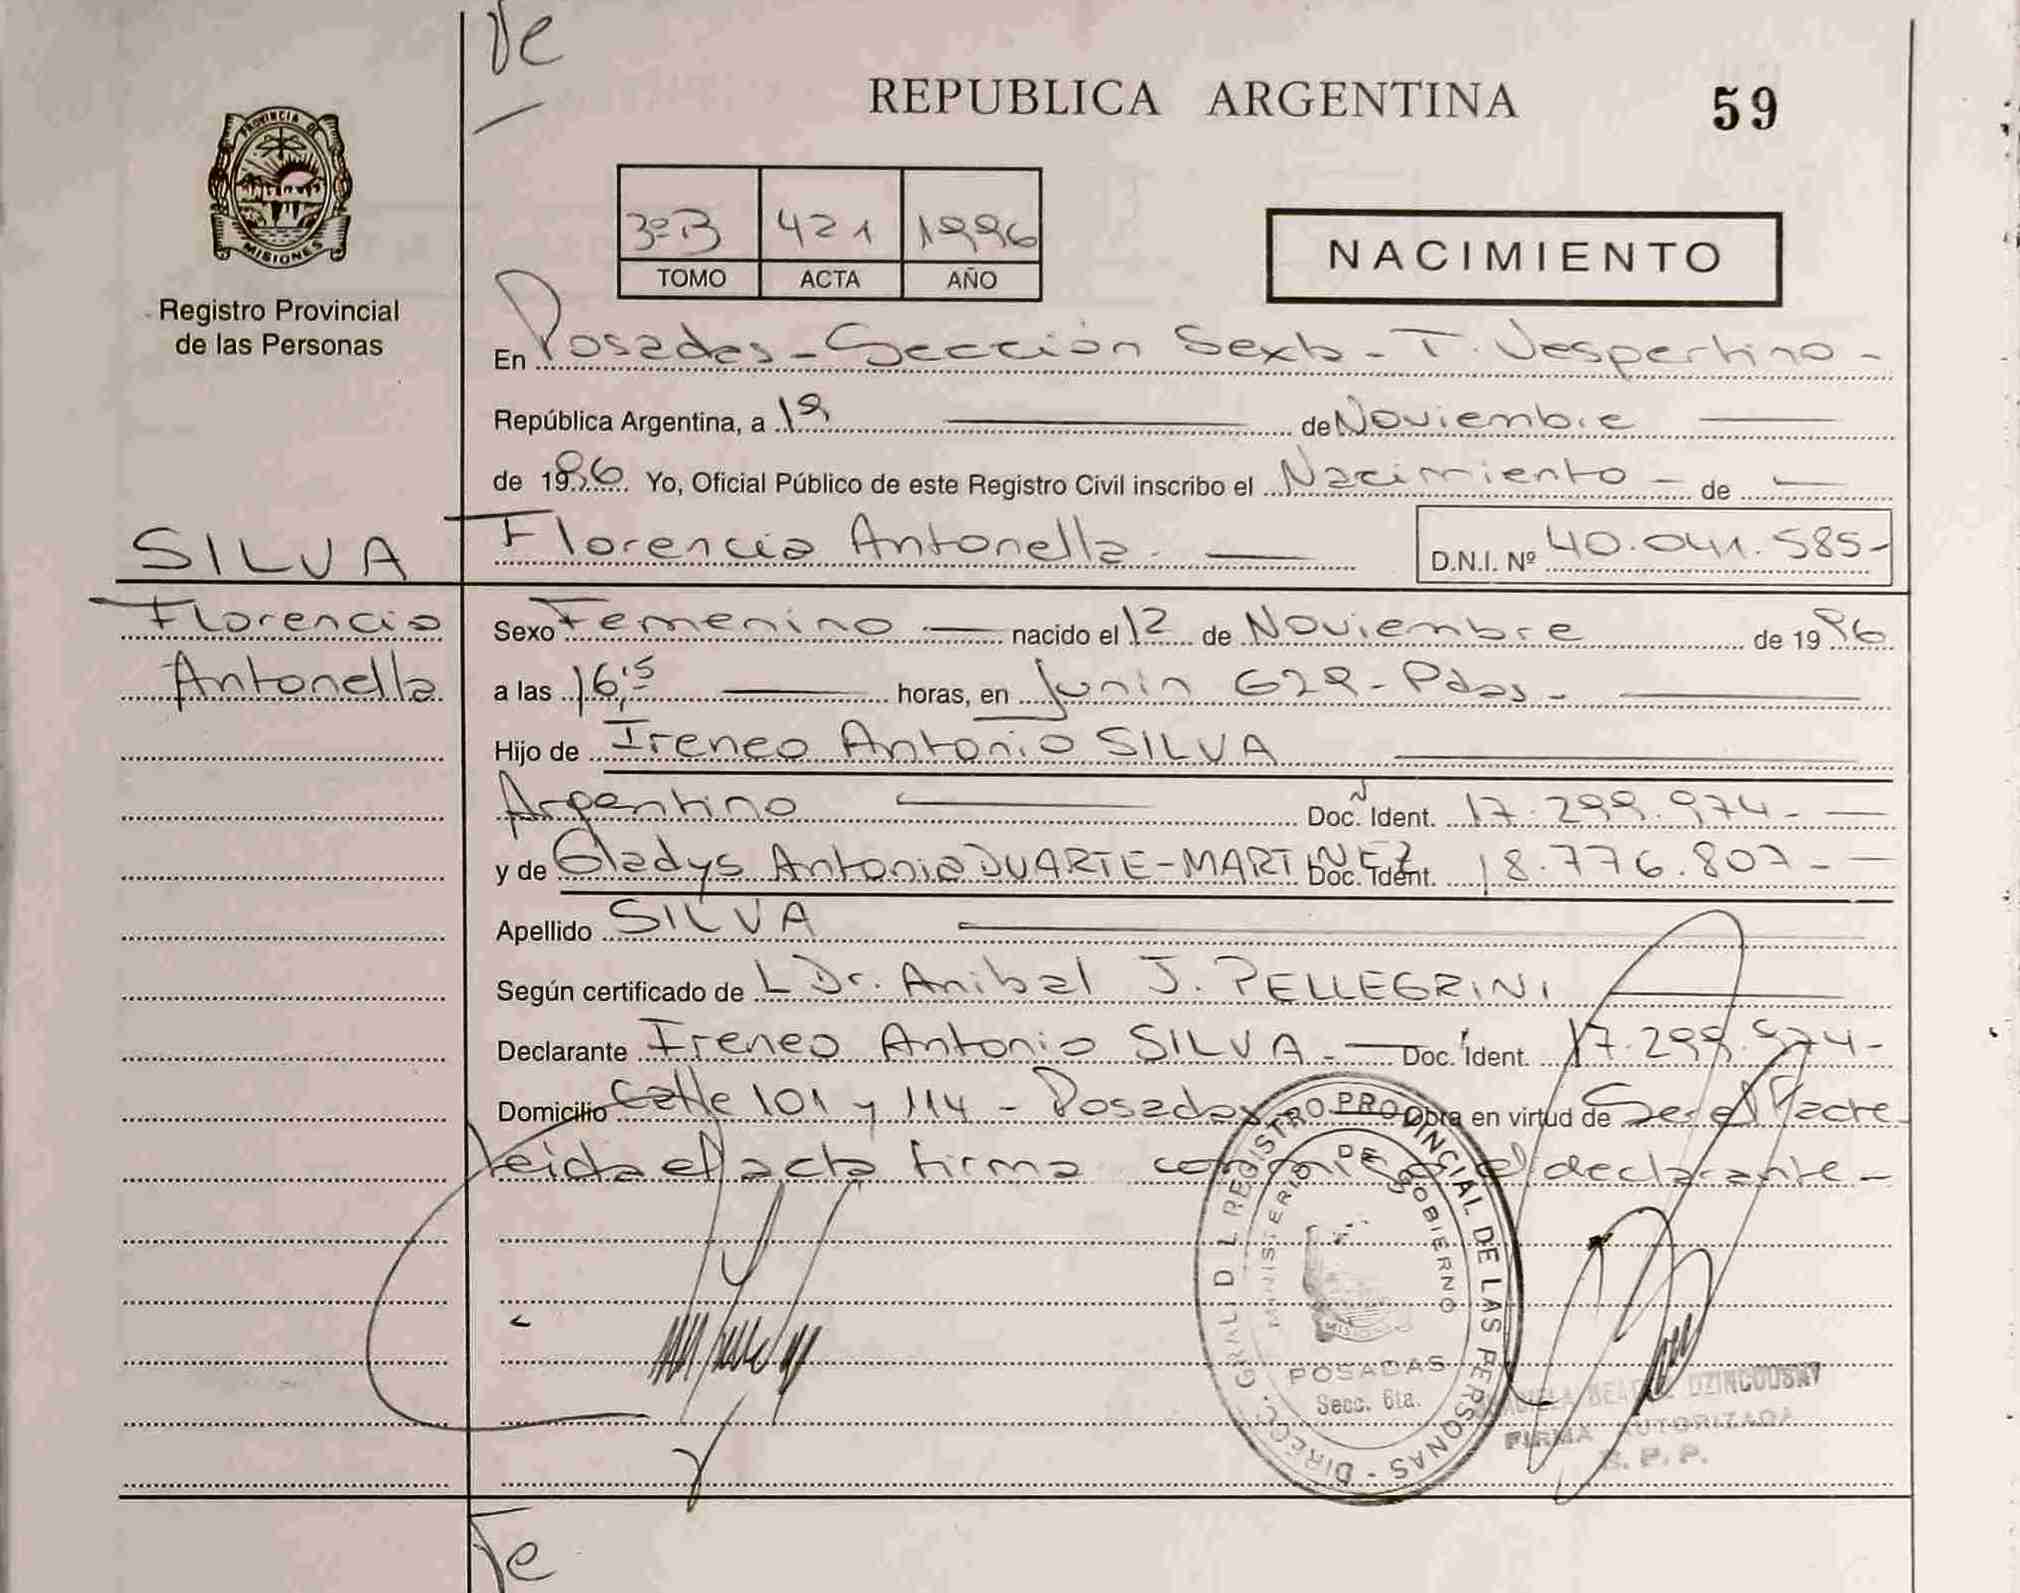 De
REPUBLICA ARGENTINA
59
PROVINCIA DE MISIONES
Registro Provincial
de las Personas
3º B 421 1996
TOMO ACTA AÑO
NACIMIENTO
En Posadas - Sección Sexta - T. Vespertino -
República Argentina, a 19 de Noviembre
de 1996 Yo, Oficial Público de este Registro Civil inscribo el Nacimiento - de -
SILVA Florencia Antonella. D.N.I. Nº 40.041.585-
Florencia
Antonella
Sexo Femenino nacido el 12 de Noviembre de 1996
a las 16,15 horas, en Junin 629 - Pdas -
Hijo de Ireneo Antonio SILVA
Argentino Doc. Ident. 17.299.974 -
y de Gladys Antonia DUARTE-MARTINEZ Doc. Ident. 18.776.807 -
Apellido SILVA
Según certificado de L Dr. Anibal J. PELLEGRINI
Declarante Ireneo Antonio SILVA - Doc. Ident. 17.299.974-
Domicilio Calle 101 y 114 - Posadas Obra en virtud de Ser el Padre -
leida el acta firma conmigo el declarante -
DIRECC. GRAL D L REGISTRO PROVINCIAL DE LAS PERSONAS -
MINISTERIO DE GOBIERNO
MISIONES
POSADAS
Secc. 6ta.
DZINCOUSKY
FIRMA AUTORIZADA
R. P. P.
Te